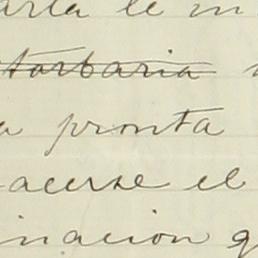 arta le in
storbaria
a pronta
acerse el
inacion q